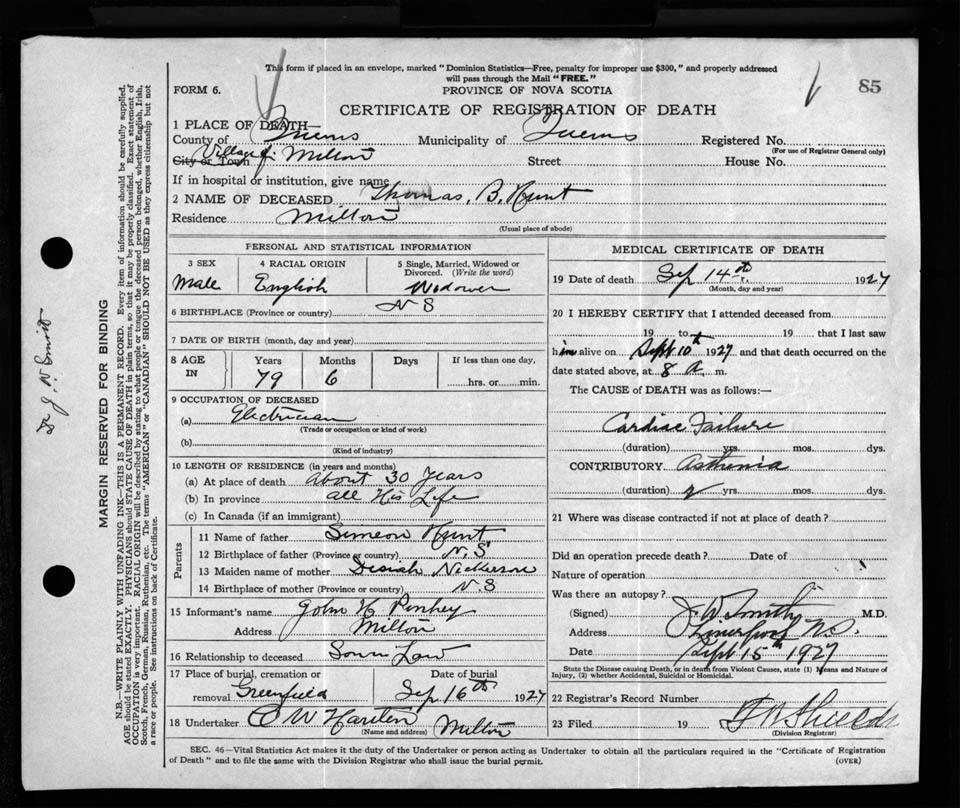 This form if placed in an envelope, marked "Dominion Statistics—Free, penalty for improper use $300," and properly addressed
will pass through the Mail "FREE."
FORM 6.
PROVINCE OF NOVA SCOTIA
85
CERTIFICATE OF REGISTRATION OF DEATH
1 PLACE OF DEATH—
County of Queens Municipality of Queens Registered No.
(For use of Registrar General only)
City or Town Village of Milton Street House No.
If in hospital or institution, give name
2 NAME OF DECEASED Thomas. B. Hunt
Residence Milton
(Usual place of abode)
PERSONAL AND STATISTICAL INFORMATION
3 SEX 4 RACIAL ORIGIN 5 Single, Married, Widowed or Divorced. (Write the word)
Male English Widower
6 BIRTHPLACE (Province or country) N S
7 DATE OF BIRTH (month, day and year)
8 AGE IN Years Months Days If less than one day,
79 6 hrs. or min.
9 OCCUPATION OF DECEASED
(a) Electrician
(Trade or occupation or kind of work)
(b)
(Kind of industry)
10 LENGTH OF RESIDENCE (in years and months)
(a) At place of death About 30 Years
(b) In province all His Life
(c) In Canada (if an immigrant)
Parents
11 Name of father Simeon Hunt
12 Birthplace of father (Province or country) N.S
13 Maiden name of mother Nickerson
14 Birthplace of mother (Province or country) N.S
15 Informant's name John H
Address Milton
16 Relationship to deceased Son in Law
17 Place of burial, cremation or removal Greenfield
Date of burial
Sep 16th 1927
18 Undertaker Milton
(Name and address)
MEDICAL CERTIFICATE OF DEATH
19 Date of death Sep 14th 1927
(Month, day and year)
20 I HEREBY CERTIFY that I attended deceased from
19 to 19 that I last saw
him alive on Sept 10th 1927 and that death occurred on the
date stated above, at 8 A. m.
The CAUSE of DEATH was as follows:—
Cardiac Failure
(duration) yrs. mos. dys.
CONTRIBUTORY Asthenia
(duration) 2 yrs. mos. dys.
21 Where was disease contracted if not at place of death?
Did an operation precede death? Date of
Nature of operation
Was there an autopsy?
(Signed) J. W. Smith M.D.
Address Liverpool N.S.
Date Sept 15th 1927
State the Disease causing Death, or in death from Violent Causes, state (1) Means and Nature of
Injury, (2) whether Accidental, Suicidal or Homicidal.
22 Registrar's Record Number
23 Filed 19 Shields
(Division Registrar)
SEC. 46—Vital Statistics Act makes it the duty of the Undertaker or person acting as Undertaker to obtain all the particulars required in the "Certificate of Registration
of Death" and to file the same with the Division Registrar who shall issue the burial permit.
(OVER)
MARGIN RESERVED FOR BINDING
N.B.—WRITE PLAINLY WITH UNFADING INK—THIS IS A PERMANENT RECORD. Every item of information should be carefully supplied.
AGE should be stated EXACTLY. PHYSICIANS should STATE CAUSE OF DEATH in plain terms, so that it may be properly classified. Exact statement of
OCCUPATION is very important. RACIAL ORIGIN will be described by stating to what people or tongue the deceased person belonged, whether English, Irish,
Scotch, French, German, Russian, Ruthenian, etc. The terms "AMERICAN" or "CANADIAN" SHOULD NOT BE USED as they express citizenship but not
a race or people. See instructions on back of Certificate.